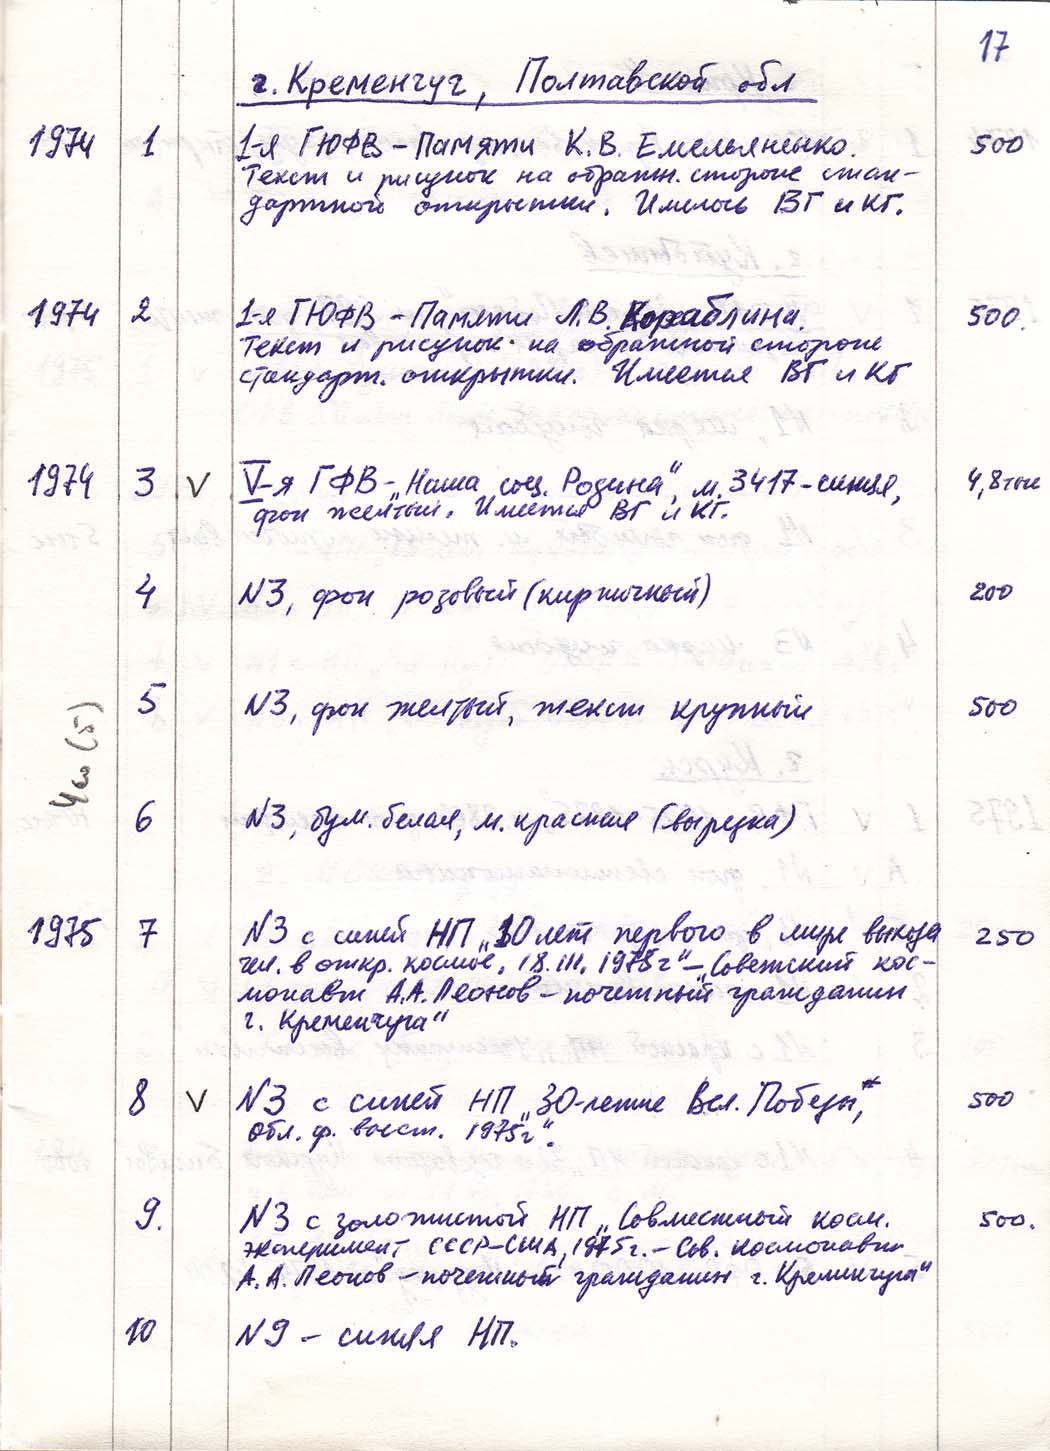 17
г. Кременчуг, Полтавской обл
1974 1 1-я ГЮФВ – Памяти К.В. Емельяненко. 500
Текст и рисунок на обратн. стороне стан-
дартной открытки. Имелось ВГ и КГ.
1974 2 1-я ГЮФВ – Памяти Л.В. Кораблина. 500.
Текст и рисунок на обратной стороне
стандарт. открытки. Имеется ВГ и КГ
1974 3 V V-я ГФВ – „Наша соц. Родина“, м. 3417 – синяя, 4,8 тыс
фон желтый. Имеется ВГ и КГ.
4 N3, фон розовый (кирпичный) 200
5 N3, фон желтый, текст крупный 500
(5)
6 N3, бум. белая, м. красная (вырезка)
1975 7 N3 с синей НП „10 лет первого в мире выхода 250
чел. в откр. космос, 18.III.1975г“ – „Советский кос-
монавт А.А. Леонов – почетный гражданин
г. Кременчуга“
8 V N3 с синей НП „30-летие Вел. Победы“, 500
обл. ф. выст. 1975г“.
9. N3 с золотистой НП „Совместный косм. 500.
эксперимент СССР–США, 1975г. – Сов. космонавт
А.А. Леонов – почетный гражданин г. Кременчуга“
10 N9 – синяя НП.